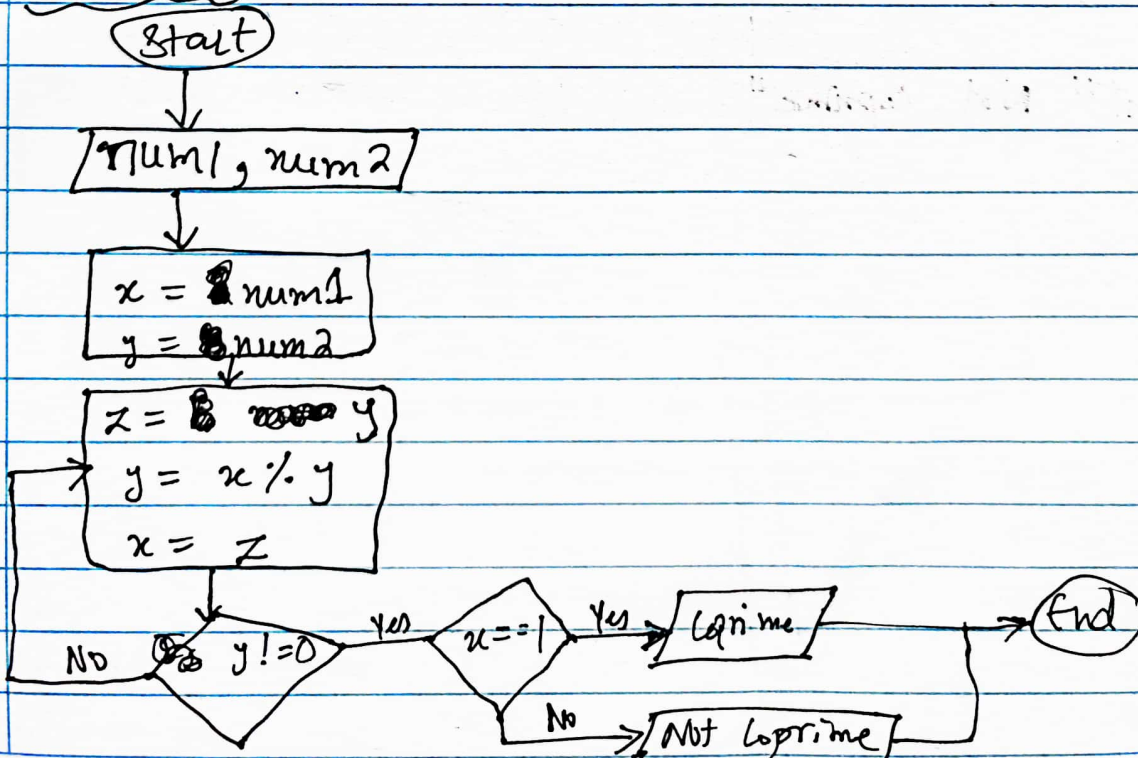 Start
num1, num2
x = num1
y = num2
z = y
y = x % y
x = z
No y!=0 Yes x==1 Yes Coprime End
No Not Coprime